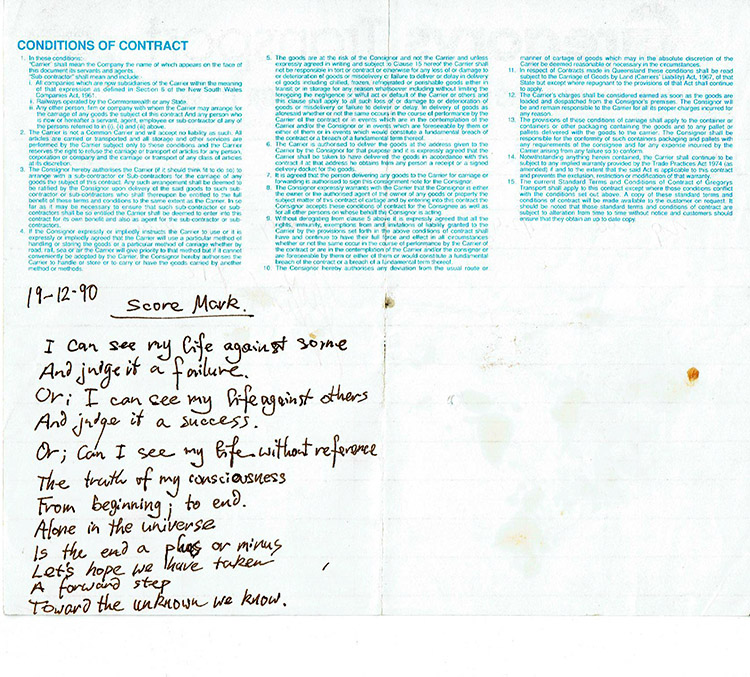 CONDITIONS OF CONTRACT
1. In these conditions:
"Carrier" shall mean the Company the name of which appears on the face
of this document its servants and agents.
"Sub contractor" shall mean and include:
i. All companies which are now subsidiaries of the Carrier within the meaning
of that expression as defined in Section 6 of the New South Wales
Companies Act, 1961.
ii. Railways operated by the Commonwealth or any State
iii. Any other person, firm or company with whom the Carrier may arrange for
the carriage of any goods the subject of this contract And any person who
is now or hereafter a servant, agent, employee or sub-contractor of any of
the persons referred to in (i), (ii) and (iii) above.
2. The Carrier is not a Common Carrier and will accept no liability as such. All
articles are carried or transported and all storage and other services are
performed by the Carrier subject only to these conditions and the Carrier
reserves the right to refuse the carriage or transport of articles for any person,
corporation or company and the carriage or transport of any class of articles
at its discretion.
3. The Consignor hereby authorises the Carrier (if it should think fit to do so) to
arrange with a sub-contractor or Sub-contractors for the carriage of any
goods the subject of this contract. Any such arrangement shall be deemed to
be ratified by the Consignor upon delivery of the said goods to such sub-
contractor or sub-contractors who shall thereupon be entitled to the full
benefit of these terms and conditions to the same extent as the Carrier. In so
far as it may be necessary to ensure that such sub-contractor or sub-
contractors shall be so entitled the Carrier shall be deemed to enter into this
contract for its own benefit and also as agent for the sub-contractor or sub-
contractors.
4. If the Consignor expressly or impliedly instructs the Carrier to use or it is
expressly or impliedly agreed that the Carrier will use a particular method of
handling or storing the goods or a particular method of carriage whether by
road, rail, sea or air the Carrier will give priority to that method but if it cannot
conveniently be adopted by the Carrier, the Consignor hereby authorises the
Carrier to handle or store or to carry or have the goods carried by another
method or methods.
5. The goods are at the risk of the Consignor and not the Carrier and unless
expressly agreed in writing and subject to Clause 15 hereof the Carrier shall
not be responsible in tort or contract or otherwise for any loss of or damage to
or deterioration of goods or misdelivery or failure to deliver or delay in delivery
of goods including chilled, frozen, refrigerated or perishable goods either in
transit or in storage for any reason whatsoever including without limiting the
foregoing the negligence or wilful act or default of the Carrier or others and
this clause shall apply to all such loss of or damage to or deterioration of
goods or misdelivery or failure to deliver or delay in delivery of goods as
aforesaid whether or not the same occur in the course of performance by the
Carrier of the contract or in events which are in the contemplation of the
Carrier and/or the Consignor or in events which are foreseeable by them or
either of them or in events which would constitute a fundamental breach of
the contract or a breach of a fundamental term thereof.
6. The Carrier is authorised to deliver the goods at the address given to the
Carrier by the Consignor for that purpose and it is expressly agreed that the
Carrier shall be taken to have delivered the goods in accordance with this
contract if at that address he obtains from any person a receipt or a signed
delivery docket for the goods.
7. It is agreed that the person delivering any goods to the Carrier for carriage or
forwarding is authorised to sign this consignment note for the Consignor.
8. The Consignor expressly warrants with the Carrier that the Consignor is either
the owner or the authorised agent of the owner of any goods or property the
subject matter of this contract of cartage and by entering into this contract the
Consignor accepts these conditions of contract for the Consignee as well as
for all other persons on whose behalf the Consignor is acting.
9. Without derogating from clause 5 above it is expressly agreed that all the
rights, immunity, exemptions from and limitations of liability granted to the
Carrier by the provisions set forth in the above conditions of contract shall
have and continue to have their full force and effect in all circumstances
whether or not the same occur in the course of performance by the Carrier of
the contract or in the contemplation of the Carrier and/or the consignor or
are foreseeable by them or either of them or would constitute a fundamental
breach of the contract or a breach of a fundamental term thereof.
10. The Consignor hereby authorises any deviation from the usual route or
manner of cartage of goods which may in the absolute discretion of the
Carrier be deemed reasonable or necessary in the circumstances.
11. In respect of Contracts made in Queensland these conditions shall be read
subject to the Carriage of Goods by Land (Carriers' Liability) Act, 1967, of that
State but except where repugnant to the provisions of that Act shall continue
to apply.
12. The Carrier's charges shall be considered earned as soon as the goods are
loaded and despatched from the Consignor's premises. The Consignor will
be and remain responsible to the Carrier for all its proper charges incurred for
any reason.
13. The provisions of these conditions of carriage shall apply to the container or
containers or other packaging containing the goods and to any pallet or
pallets delivered with the goods to the carrier. The Consignor shall be
responsible for the conformity of such containers packaging and pallets with
any requirements of the consignee and for any expense incurred by the
Carrier arising from any failure so to conform.
14. Notwithstanding anything herein contained, the Carrier shall continue to be
subject to any implied warranty provided by the Trade Practices Act 1974 (as
amended) if and to the extent that the said Act is applicable to this contract
and prevents the exclusion, restriction or modification of that warranty.
15. The current Standard Terms and Conditions of Contract of Gregorys
Transport shall apply to this contract except where those conditions conflict
with the conditions set out above. A copy of these standard terms and
conditions of contract will be made available to the customer on request. It
should be noted that those standard terms and conditions of contract are
subject to alteration from time to time without notice and customers should
ensure that they obtain an up to date copy.
19-12-90
Score Mark.
I can see my life against some
And judge it a failure.
Or; I can see my life against others
And judge it a success.
Or; Can I see my life without reference
The truth of my consciousness
From beginning; to end.
Alone in the universe
Is the end a plus or minus
Let's hope we have taken
A forward step
Toward the unknown we know.